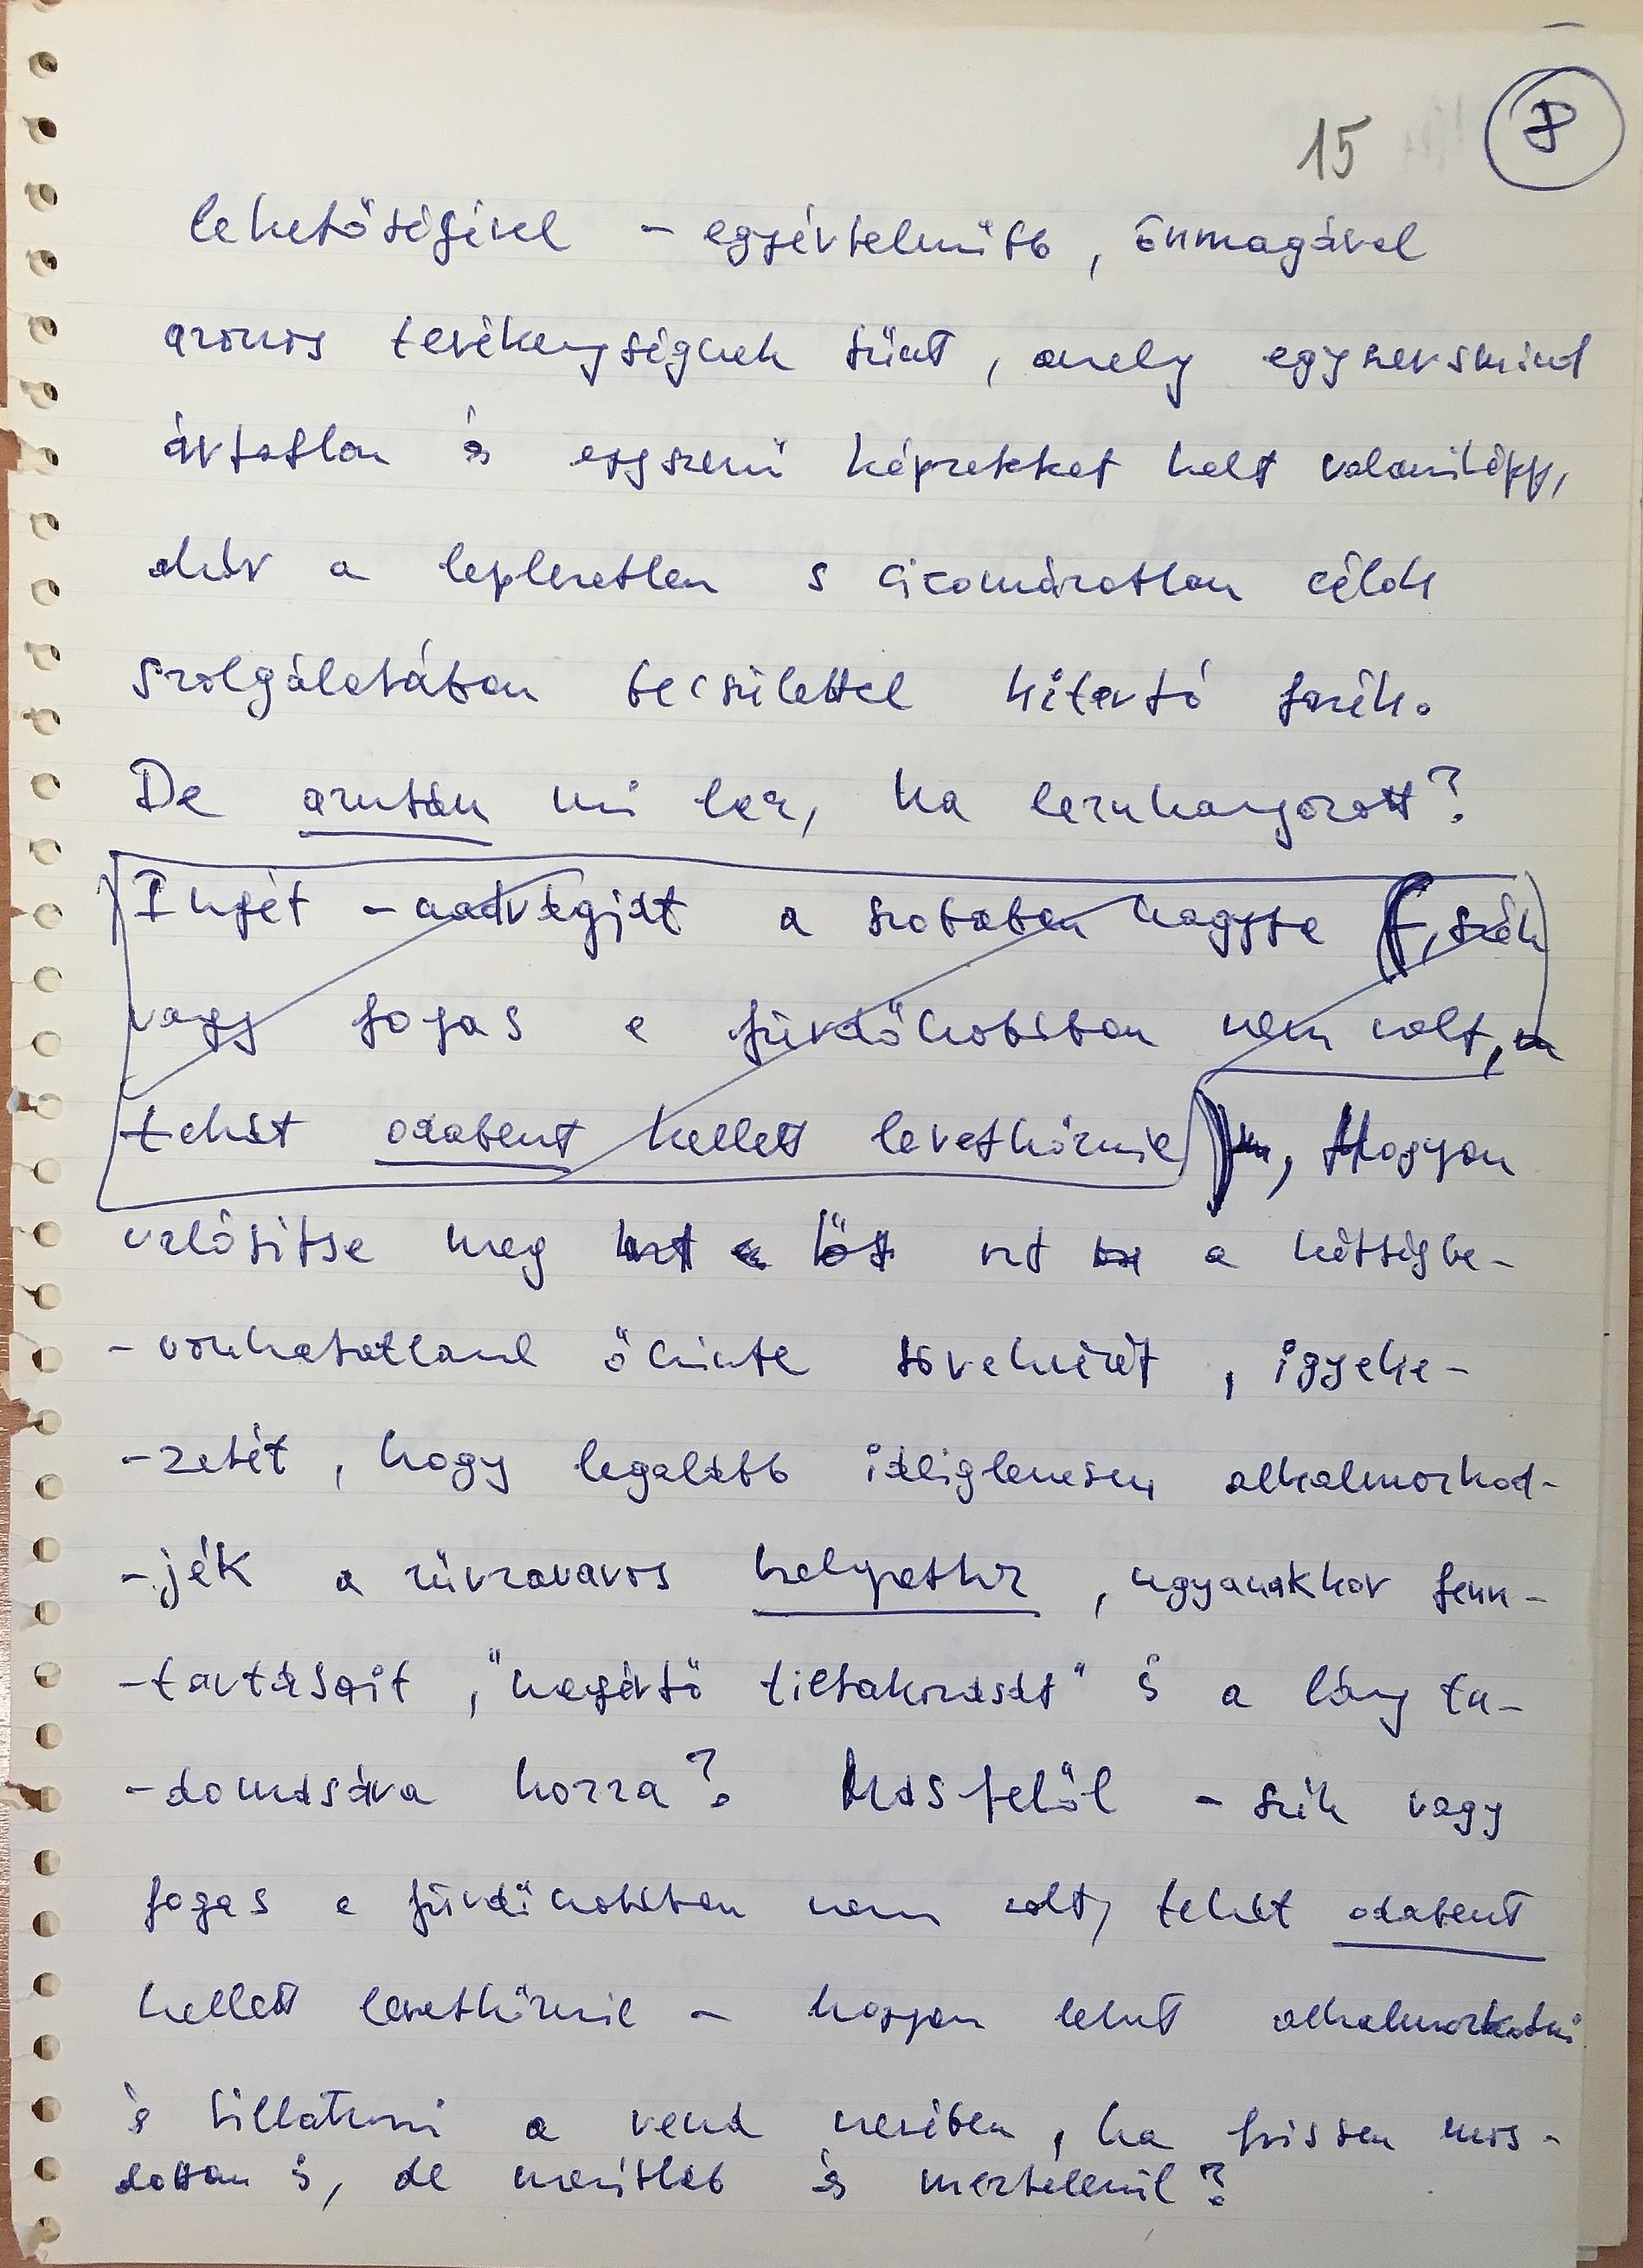 15 8
lehetőségével – egyértelműbb, önmagával
azonos tevékenységnek tűnt, amely egyszersmind
ártatlan és egyszerű képzeteket kelt valamiképp,
akár a leplezetlen s cicomázatlan célok
szolgálatában becsülettel kitartó szék.
De azután mi lesz, ha lezuhanyozott?
Ingét – nadrágját a szobában hagyja, szék
vagy fogas a fürdőszobában nem volt,
tehát odabent kellett levetkőznie, Hogyan
valósítsa meg azt a kétségbe-
-vonhatatlanul őszinte törekvését, igyeke-
-zetét, hogy legalább ideiglenesen alkalmazkod-
-jék a zűrzavaros helyzethez, ugyanakkor fenn-
-tartásait, "megértő tiltakozását" is a lány tu-
-domására hozza? Másfelől – szék vagy
fogas a fürdőszobában nem volt, tehát odabent
kellett levetkőznie – hogyan lehet alkalmazkodni
és tiltakozni a rend nevében, ha frissen mos-
dottan is, de mezítláb és meztelenül?